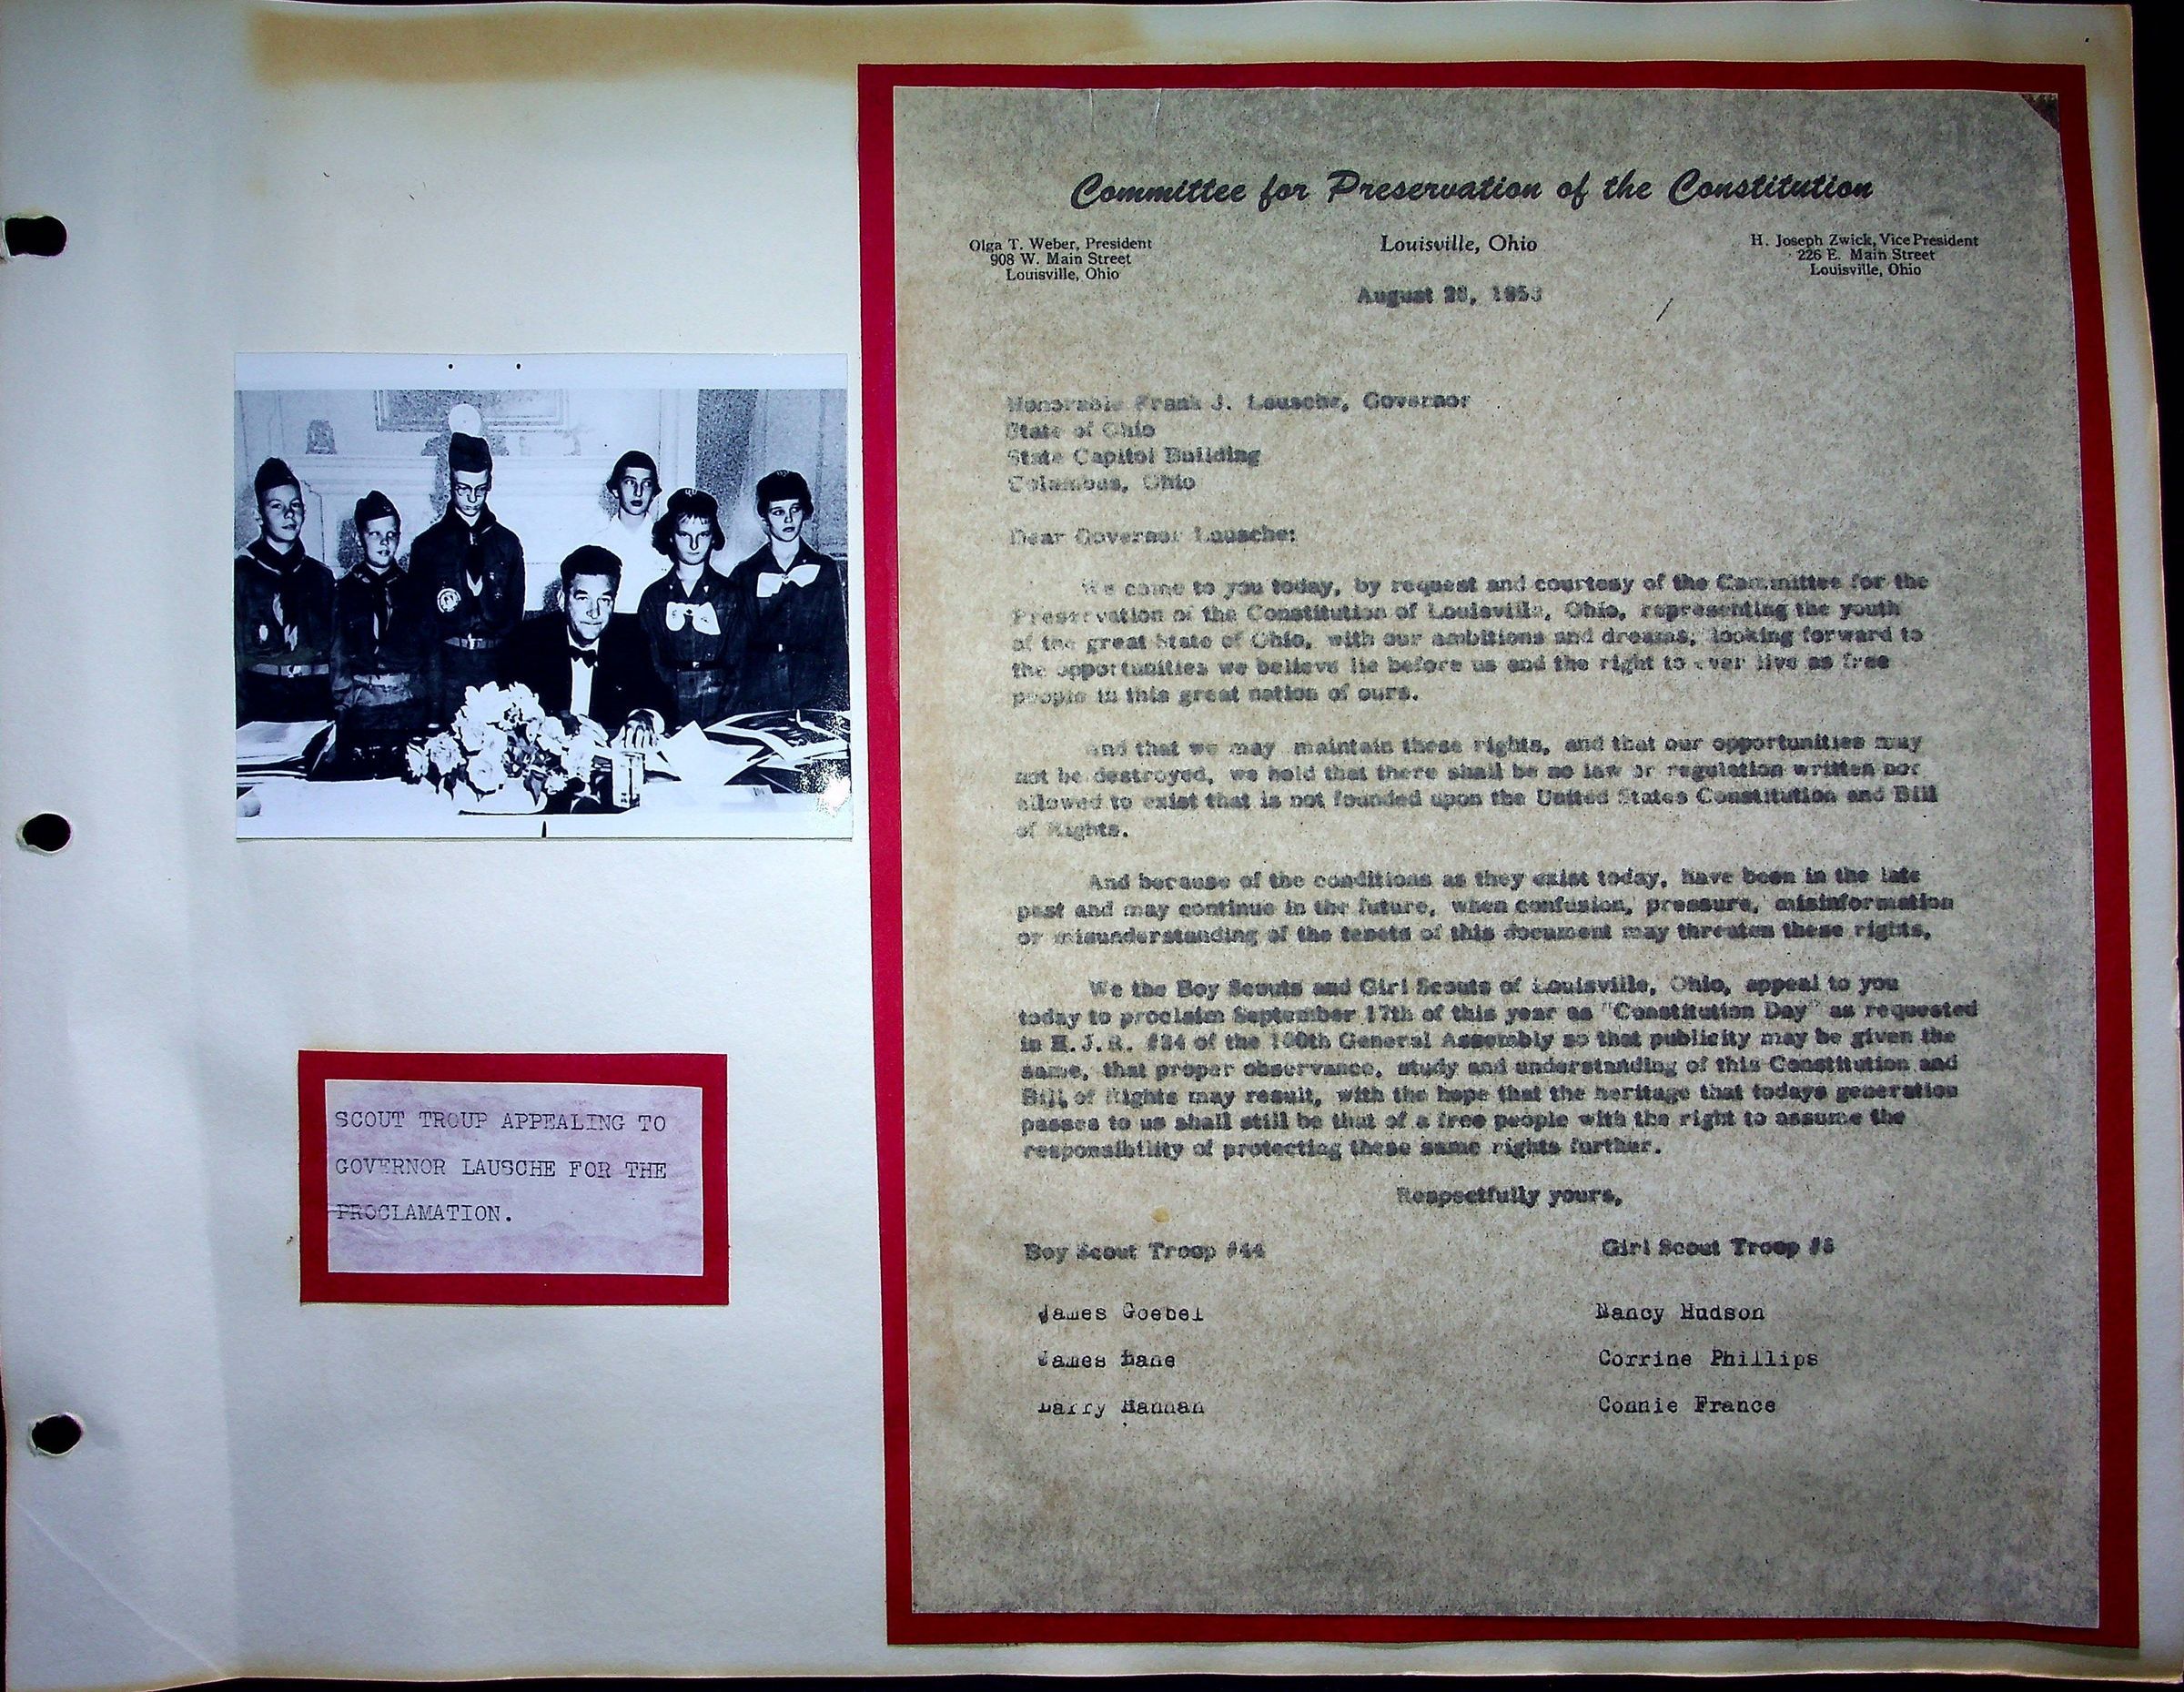 SCOUT TROUP APPEALING TO
GOVERNOR LAUSCHE FOR THE
PROCLAMATION.
Committee for Preservation of the Constitution
Olga T. Weber, President
908 W. Main Street
Louisville, Ohio
Louisville, Ohio
H. Joseph Zwick, Vice President
226 E. Main Street
Louisville, Ohio
August 1953
Honorable Frank J. Lausche, Governor
State of Ohio
State Capitol Building
Columbus, Ohio
Dear Governor Lausche:
We come to you today, by request and courtesy of the Committee for the
Preservation of the Constitution of Louisville, Ohio, representing the youth
of the great State of Ohio, with our ambitions and dreams, looking forward to
the opportunities we believe lie before us and the right to ever live as free
people in this great nation of ours.
And that we may maintain these rights, and that our opportunities may
not be destroyed, we hold that there shall be no law or regulation written nor
allowed to exist that is not founded upon the United States Constitution and Bill
of Rights.
And because of the conditions as they exist today, have been in the late
past and may continue in the future, when confusion, pressure, misinformation
or misunderstanding of the tenets of this document may threaten these rights,
We the Boy Scouts and Girl Scouts of Louisville, Ohio, appeal to you
today to proclaim September 17th of this year as "Constitution Day" as requested
in H.J.R. #34 of the 100th General Assembly so that publicity may be given the
same, that proper observance, study and understanding of this Constitution and
Bill of Rights may result, with the hope that the heritage that todays generation
passes to us shall still be that of a free people with the right to assume the
responsibility of protecting these same rights further.
Respectfully yours,
Boy Scout Troop #44
Girl Scout Troop
James Goebel
Nancy Hudson
James Lane
Corrine Phillips
Larry Hannan
Connie France